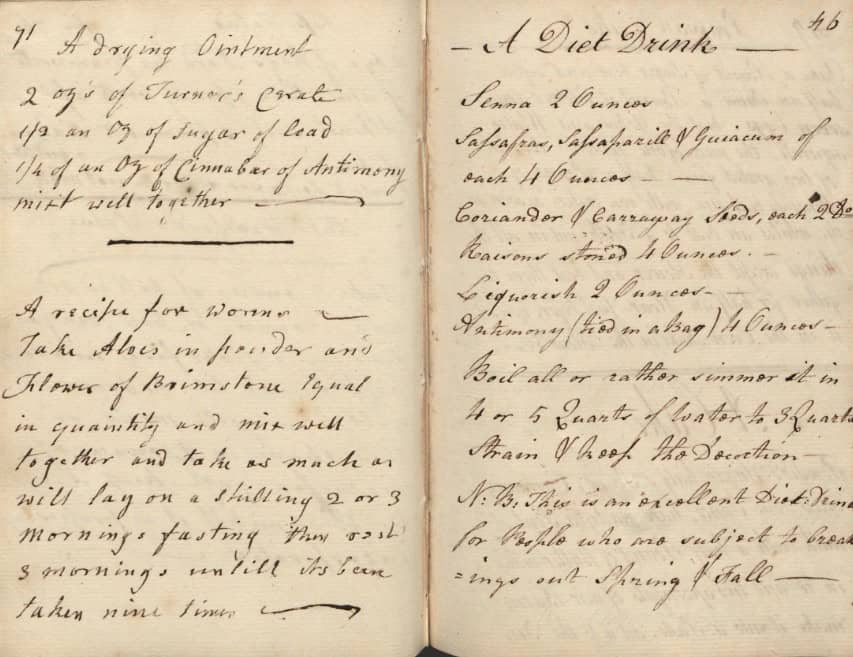 71
A drying Ointment
2 oz's of Turner's Cerate
1/2 an Oz of Sugar of lead
1/4 of an Oz of Cinnabar of Antimony
mixt well together
A recipe for worms
Take Aloes in powder and
Flower of Brimstone Equal
in quaintity and mix well
together and take as much as
will lay on a shilling 2 or 3
mornings fasting then rest
3 mornings untill its been
taken nine times
46
— A Diet Drink —
Senna 2 Ounces
Saſsafras, Saſsaparill & Guiacum of
each 4 Ounces — —
Coriander & Carraway Seeds, each 2 Do
Raisons stoned 4 Ounces. —
Liquorish 2 Ounces —
Antimony (tied in a Bag) 4 Ounces —
Boil all or rather simmer it in
4 or 5 Quarts of Water to 3 Quarts
Strain & keep the Decoction —
N: B: This is an excellent Diet: Drink
for People who are subject to break
=ings out Spring & Fall —